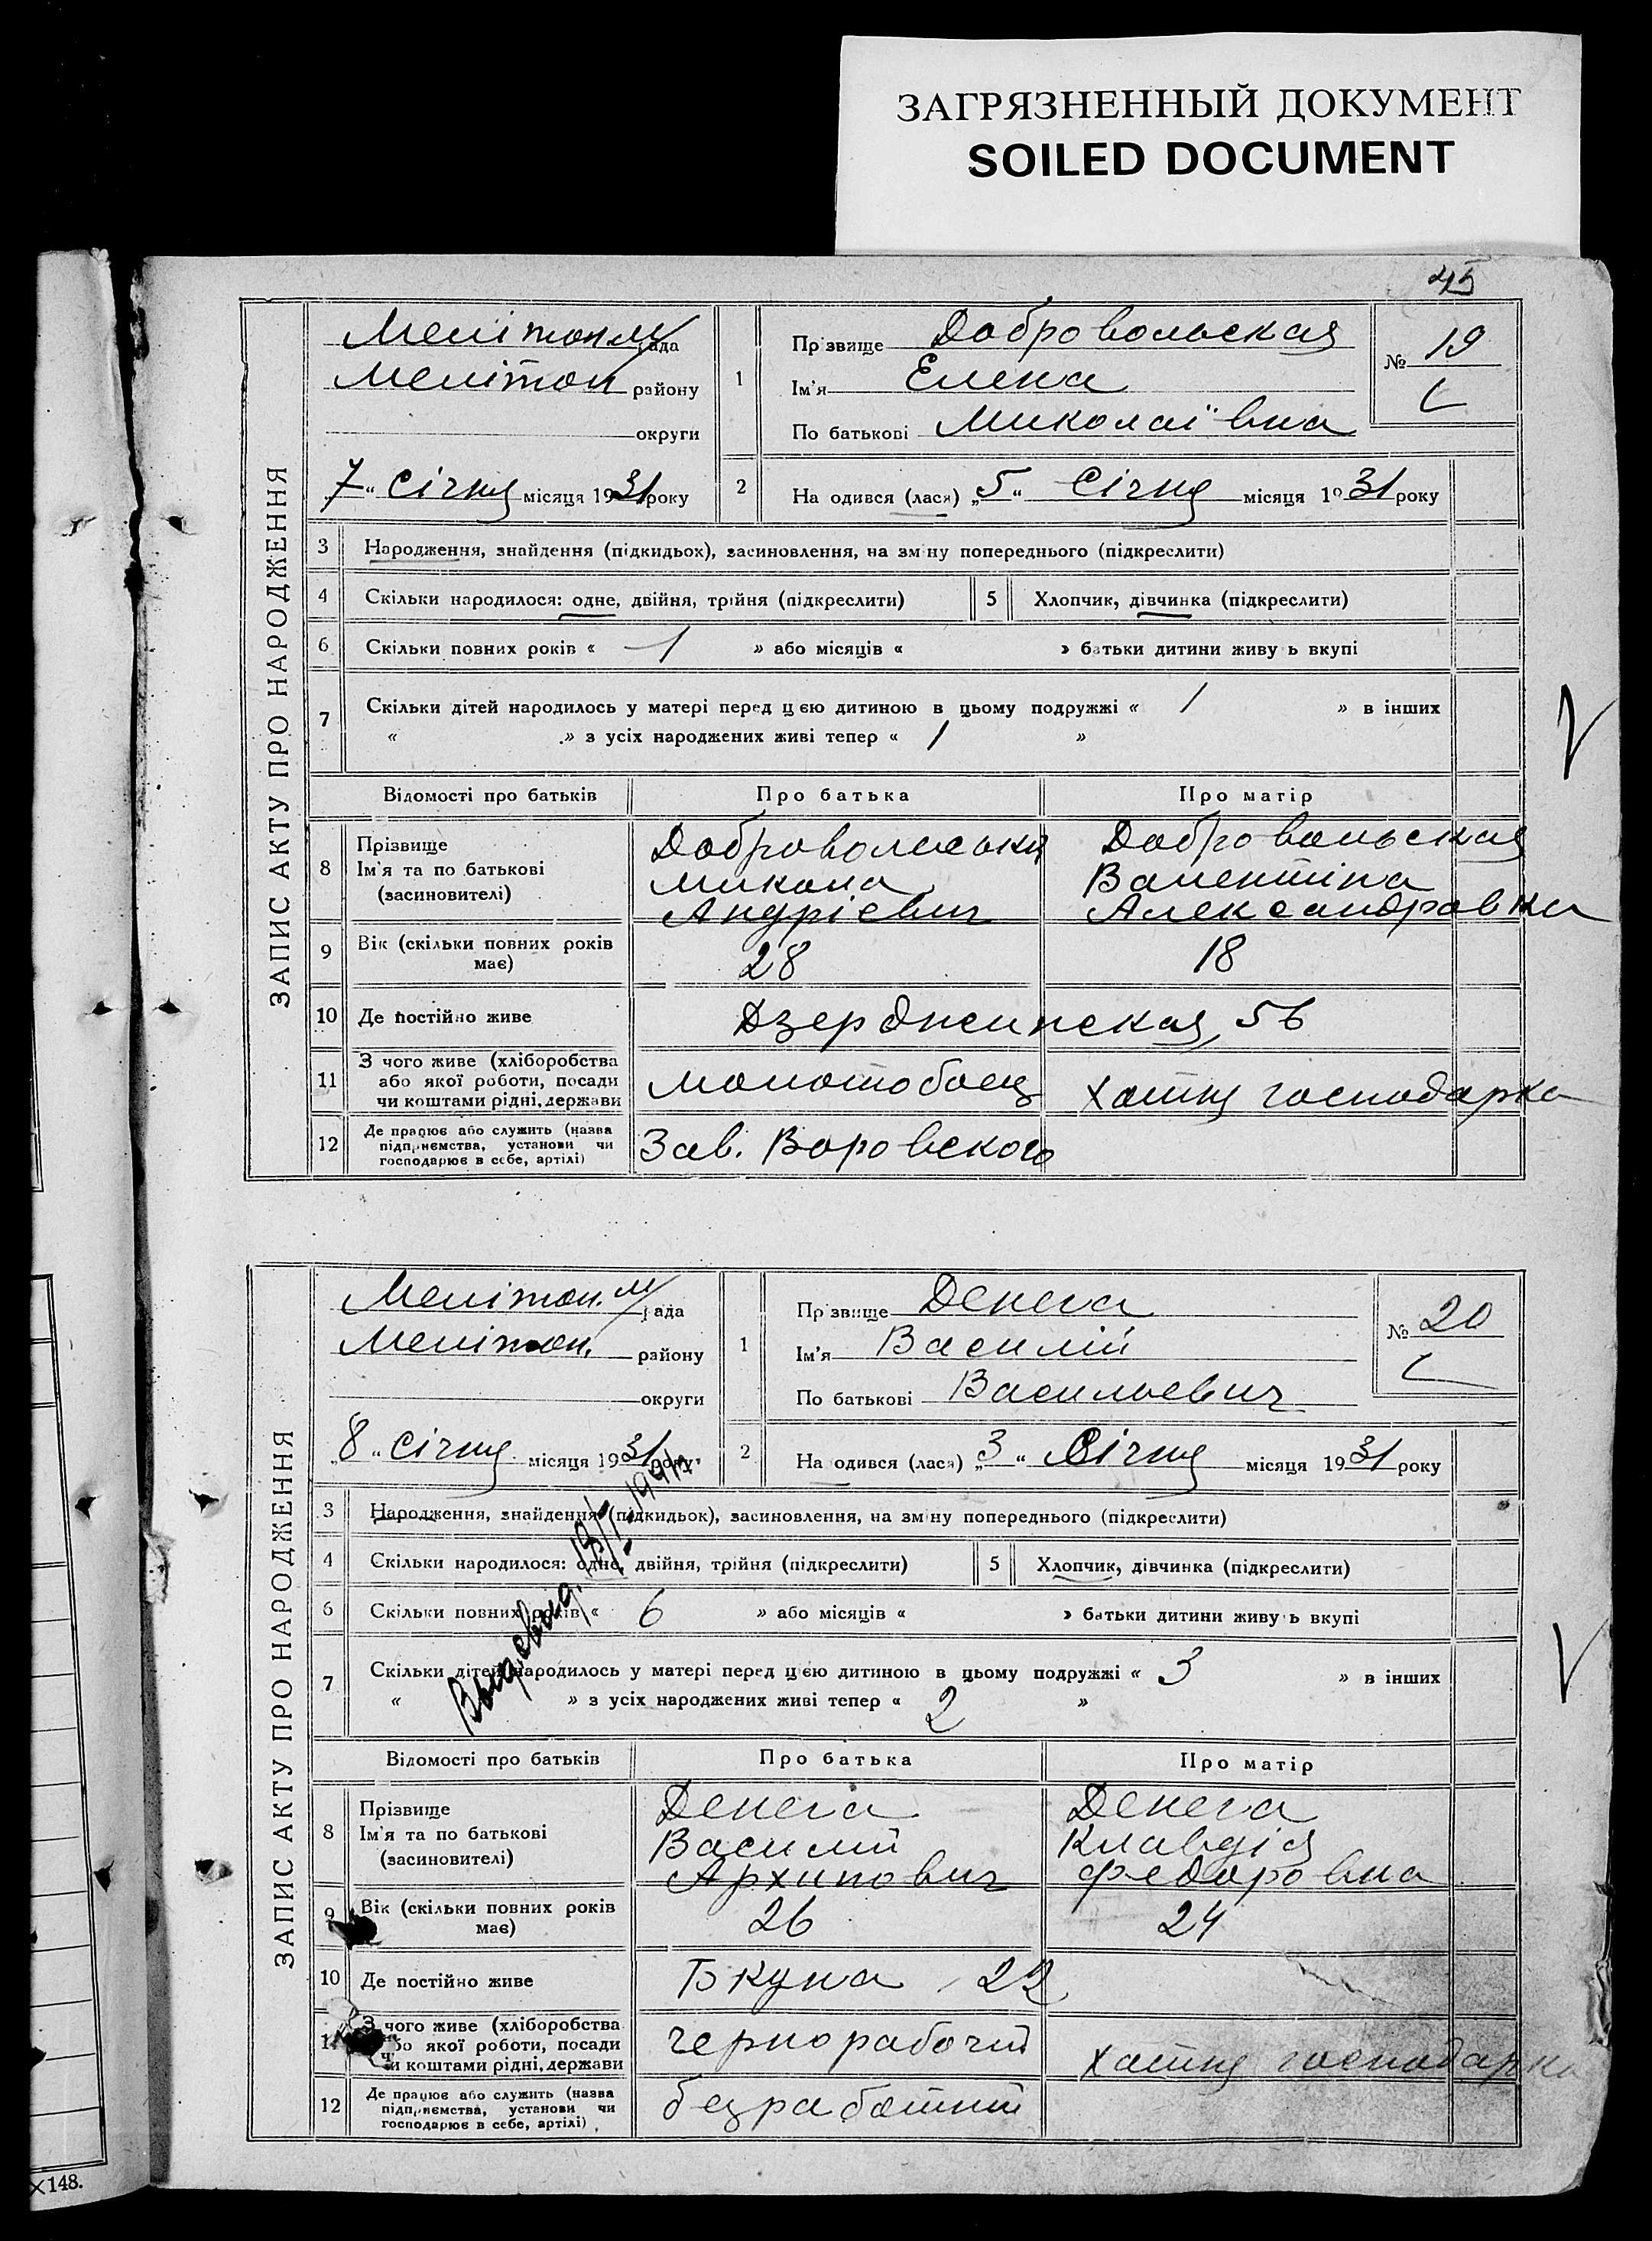 ЗАГРЯЗНЕННЫЙ ДОКУМЕНТ
SOILED DOCUMENT
45
ЗАПИС АКТУ ПРО НАРОДЖЕННЯ
Мелітоп. м/рада
Мелітоп району
округи
7 " Січня місяця 1931 року
1
Прізвище Добровольская
Ім'я Елена
По батькові Миколаївна
№ 19
2
На одився (лася) „5" Січня місяця 1931 року
3 Народження, знайдення (підкидьох), засиновлення, на зміну попереднього (підкреслити)
4 Скільки народилося: одне, двійня, трійня (підкреслити) 5 Хлопчик, дівчинка (підкреслити)
6 Скільки повних років « 1 » або місяців « » батьки дитини живу ь вкупі
7 Скільки дітей народилось у матері перед цією дитиною в цьому подружжі « 1 » в інших
« » з усіх народжених живі тепер « 1 »
Відомості про батьків Про батька Про матір
8 Прізвище
Ім'я та по батькові
(засиновителі)
Добровольський
Микола
Андрієвич
Добровольская
Валентіна
Александровна
9 Вік (скільки повних років має) 28 18
10 Де постійно живе Дзержинская, 56
11 З чого живе (хліборобства
або якої роботи, посади
чи коштами рідні, держави
молотобоец хатня господарка
12 Де працює або служить (назва
підприємства, установи чи
господарює в себе, артілі)
Зав. Воровского
ЗАПИС АКТУ ПРО НАРОДЖЕННЯ
Мелітоп. м/рада
Мелітоп. району
округи
„8" Січня місяця 1931 року
1
Прізвище Денега
Ім'я Василій
По батькові Васильевич
№ 20
2
На одився (лася) „3" Січня місяця 1931 року
3 Народження, знайдення (підкидьок), засиновлення, на зміну попереднього (підкреслити)
4 Скільки народилося: одне, двійня, трійня (підкреслити) 5 Хлопчик, дівчинка (підкреслити)
6 Скільки повних років « 6 » або місяців « » батьки дитини живу ь вкупі
7 Скільки дітей народилось у матері перед цією дитиною в цьому подружжі « 3 » в інших
« » з усіх народжених живі тепер « 2 »
Відомості про батьків Про батька Про матір
8 Прізвище
Ім'я та по батькові
(засиновителі)
Денега
Василій
Архипович
Денега
Клавдія
Федоровна
9 Вік (скільки повних років має) 26 24
10 Де постійно живе 22
11 З чого живе (хліборобства
або якої роботи, посади
чи коштами рідні, держави
чернорабочий хатня господарка
12 Де працює або служить (назва
підприємства, установи чи
господарює в себе, артілі)
безработний
×148.